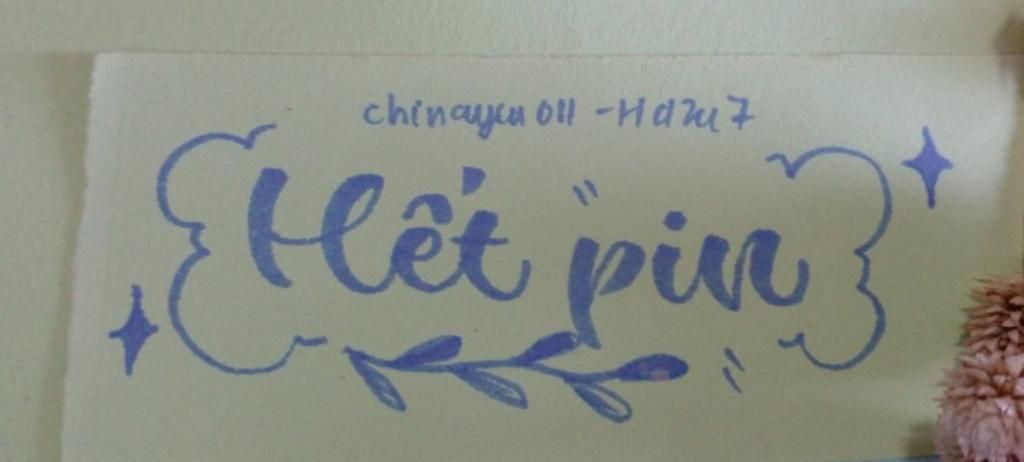 chinayuu011 - Hazu7
Hết "pin"